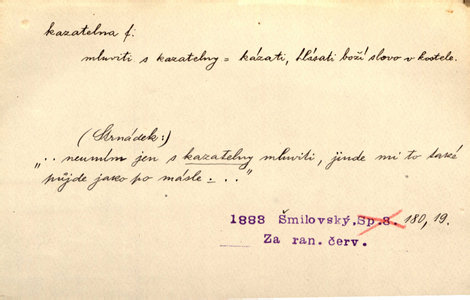 kazatelna f.
mluviti s kazatelny = kázati, hlásati boží slovo v kostele.
(Strnádek:)
„.. neumím jen s kazatelny mluviti, jinde mi to také
půjde jako po másle - .."
1883 Šmilovský, Sp.8. 180, 19.
Za ran. červ.